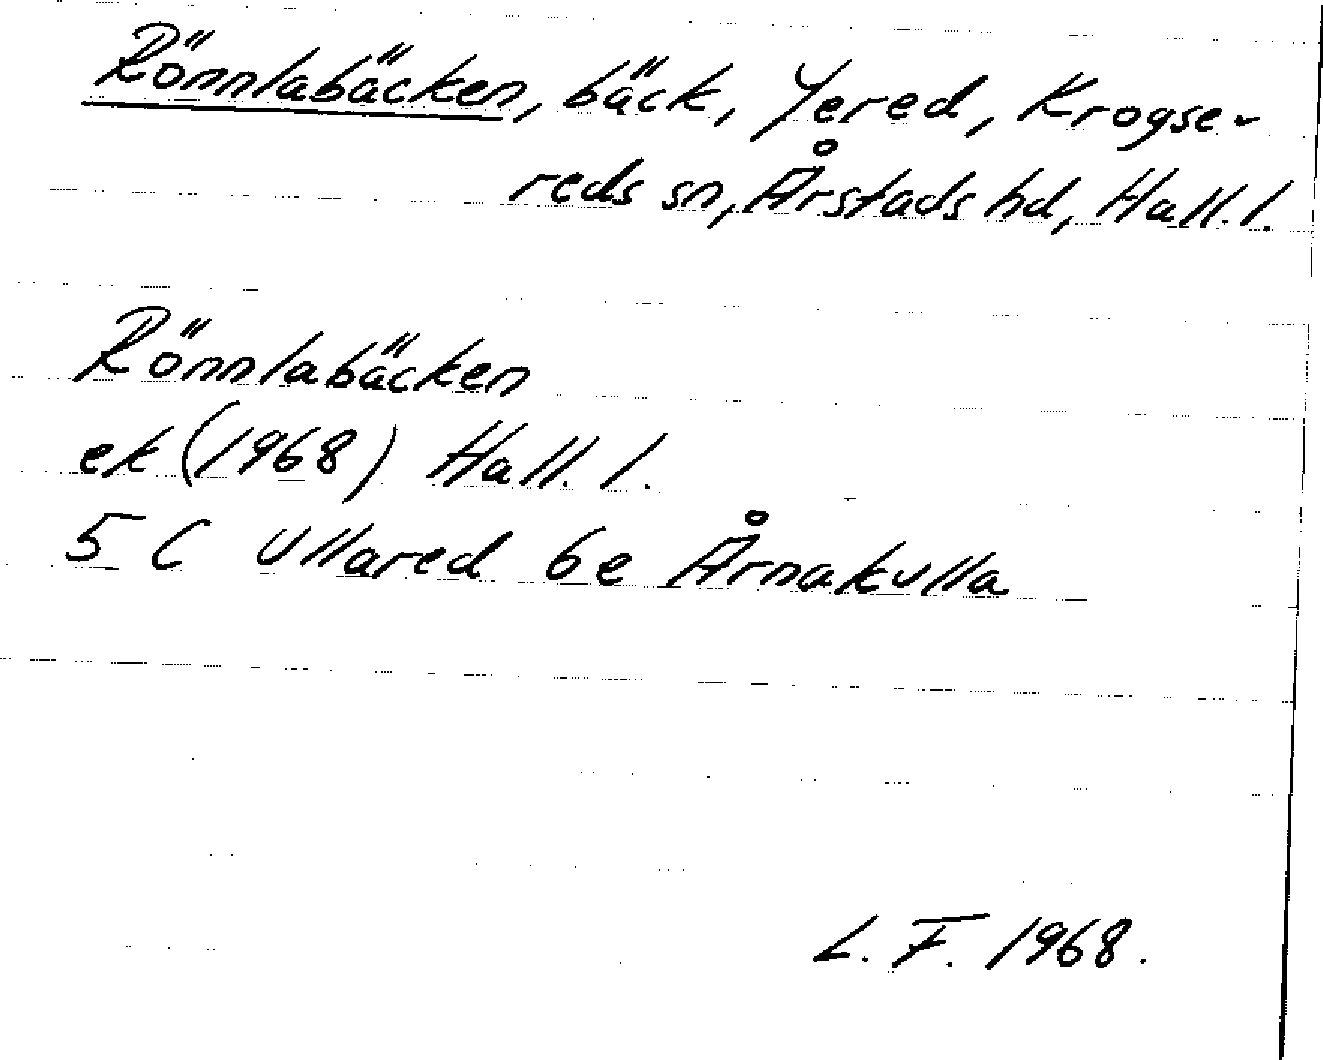 Rönnlabäcken, bäck, Yered, Krogse-
reds sn, Årstads hd, Hall. l.
Rönnlabäcken
ek (1968) Hall. l.
5 C Ullared 6e Årnakulla
L. F. 1968.